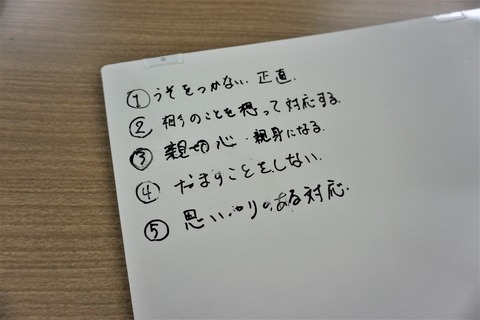 ① うそをつかない. 正直.
② 相手のことを想って対応する.
③ 親切心・親身になる.
④ だますことをしない.
⑤ 思いやりのある対応.